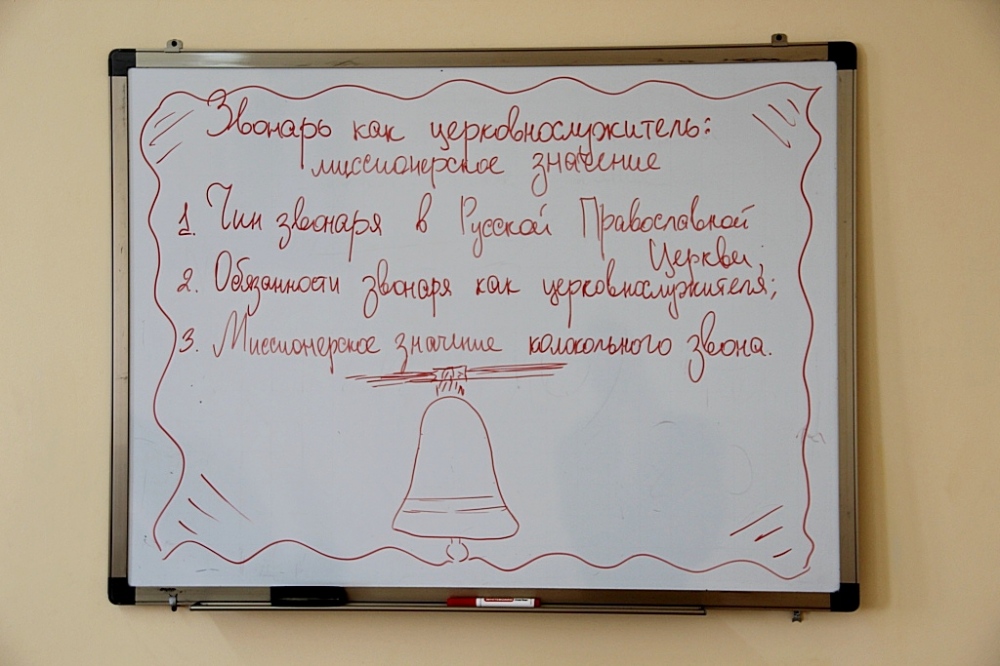 Звонарь как церковнослужитель:
миссионерское значение
1. Чин звонаря в Русской Православной
Церкви;
2. Обязанности звонаря как церковнослужителя;
3. Миссионерское значение колокольного звона.